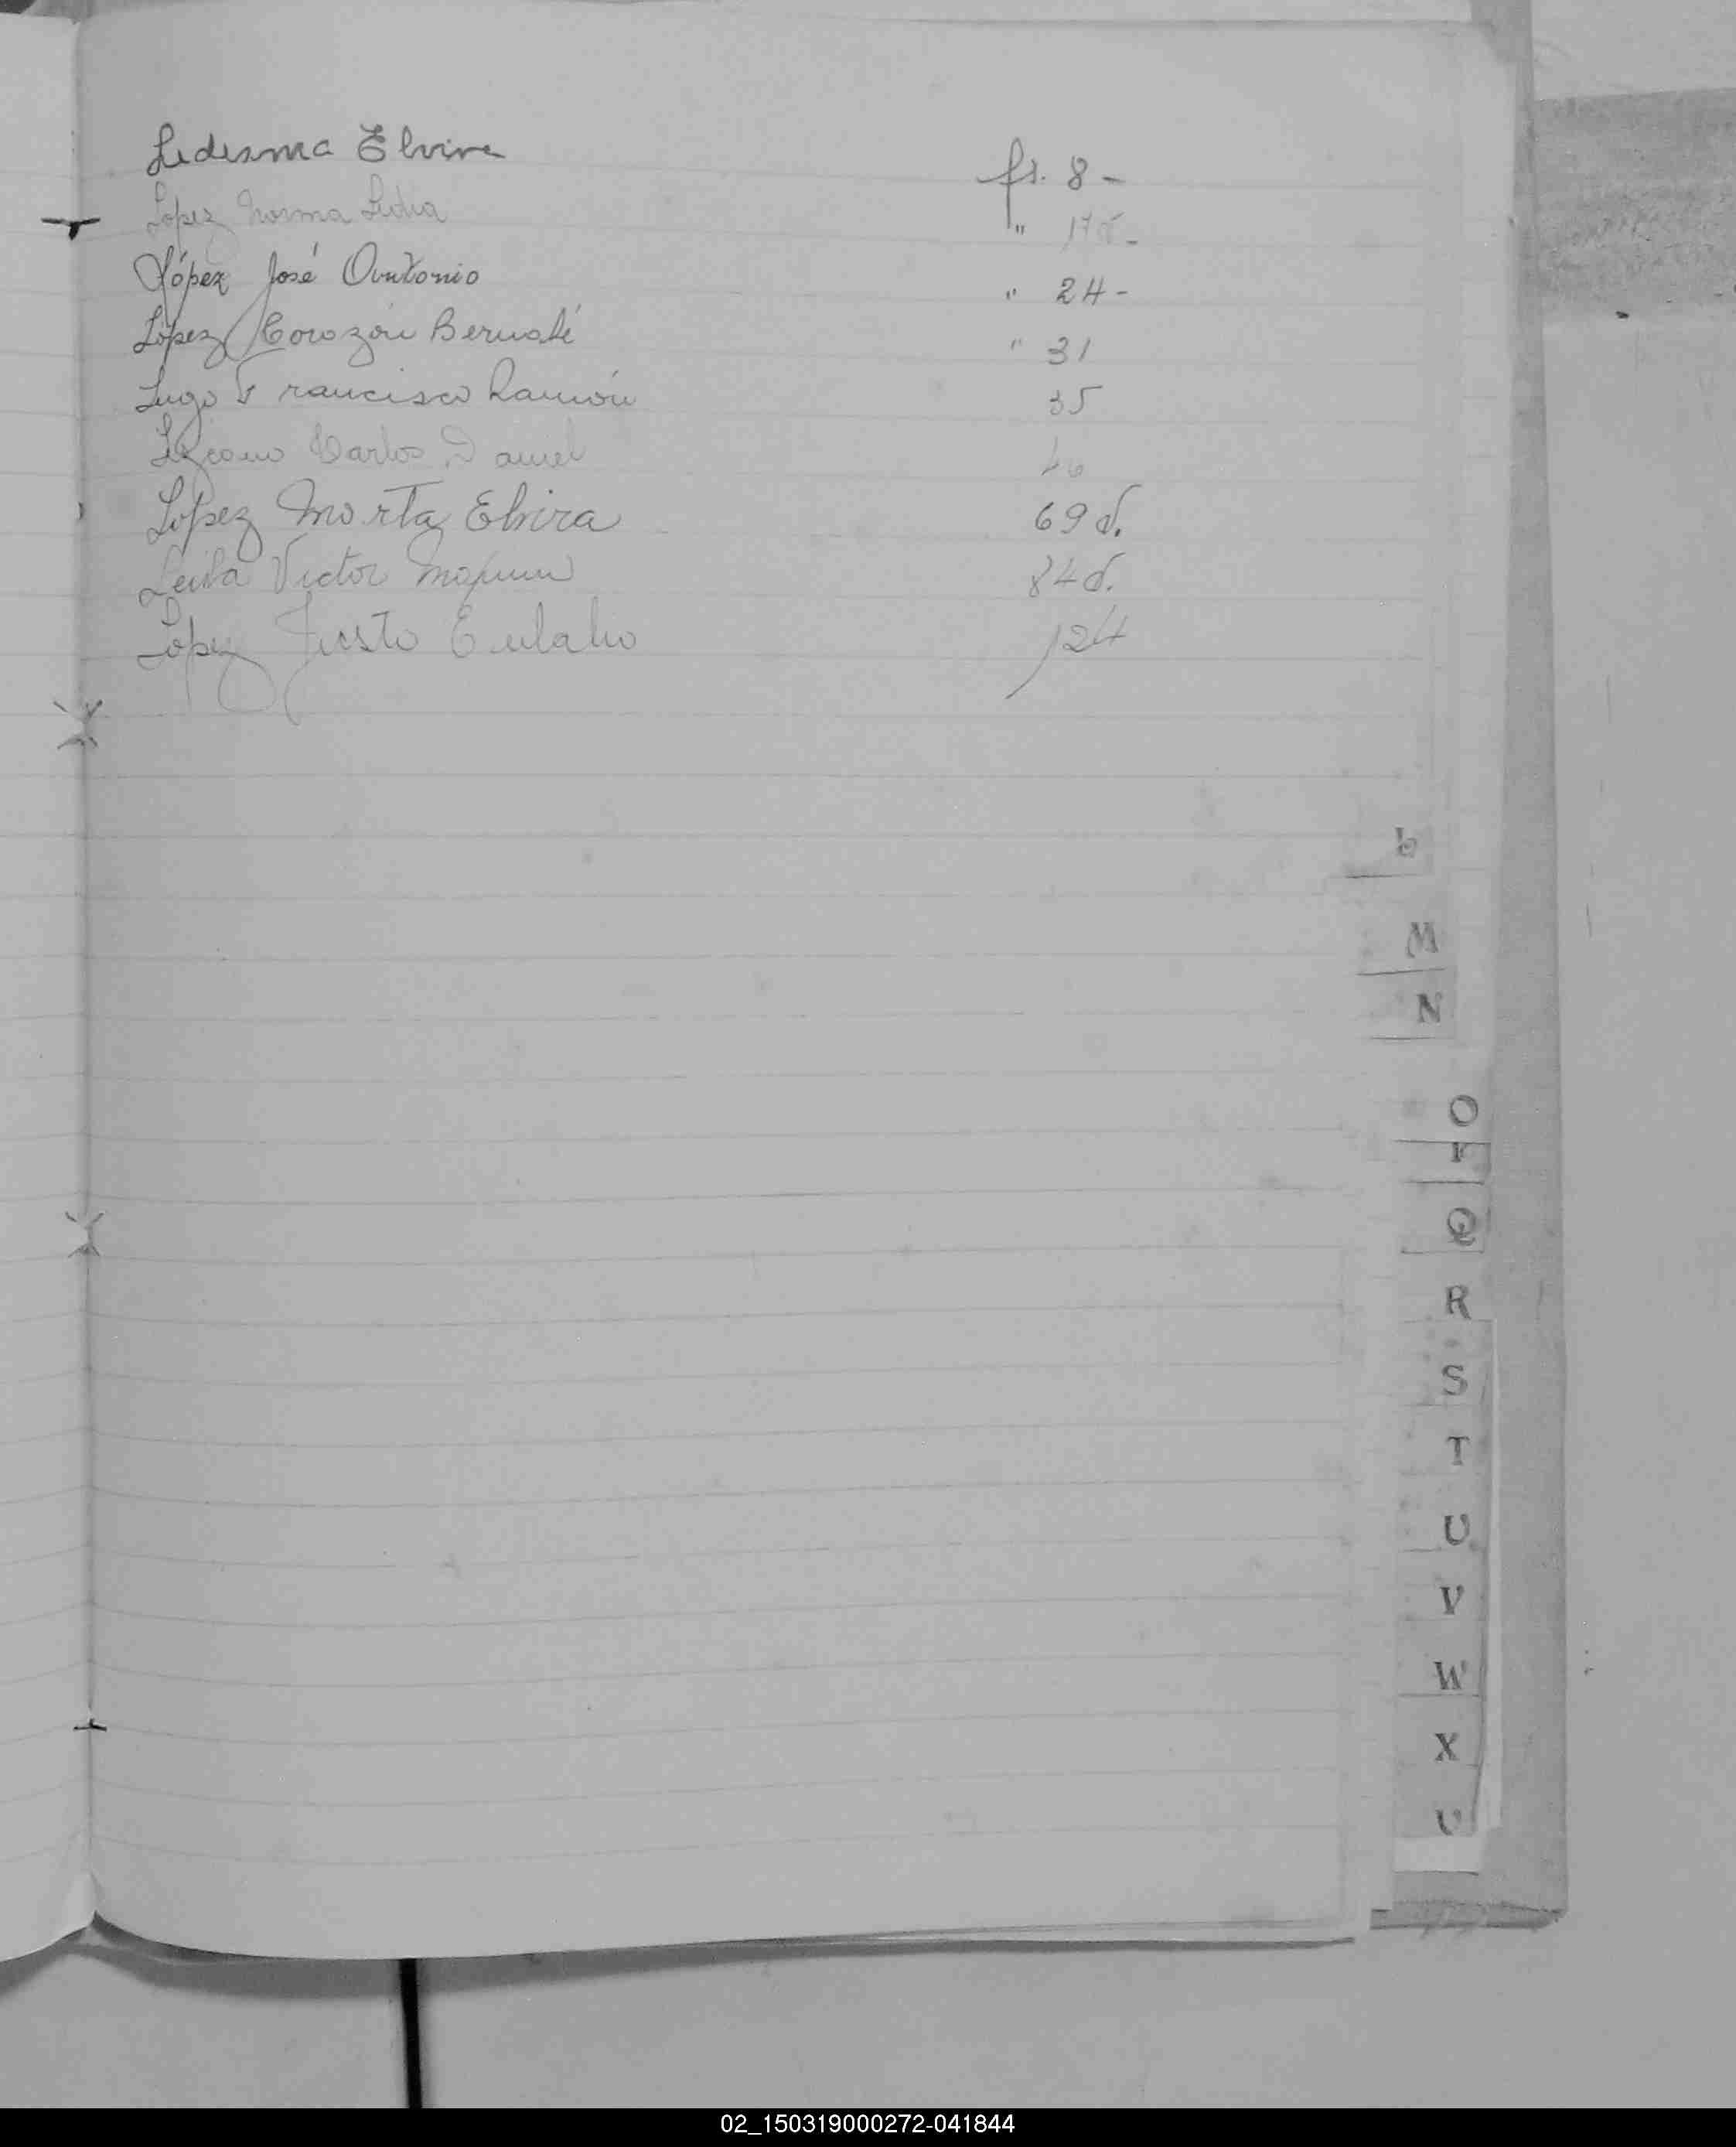 Ledesma Elvira fs. 8 -
López Norma Lidia " 17 d -
López José Antonio " 24 -
López Corazón Bernabé " 31
Lugo Francisco Ramón 35
Carlos Daniel 46
López Marta Elvira 69 d.
Leiva Victor 84 d.
López Justo Eulalio 124
M
N
O
P
Q
R
S
T
U
V
W
X
02_150319000272-041844